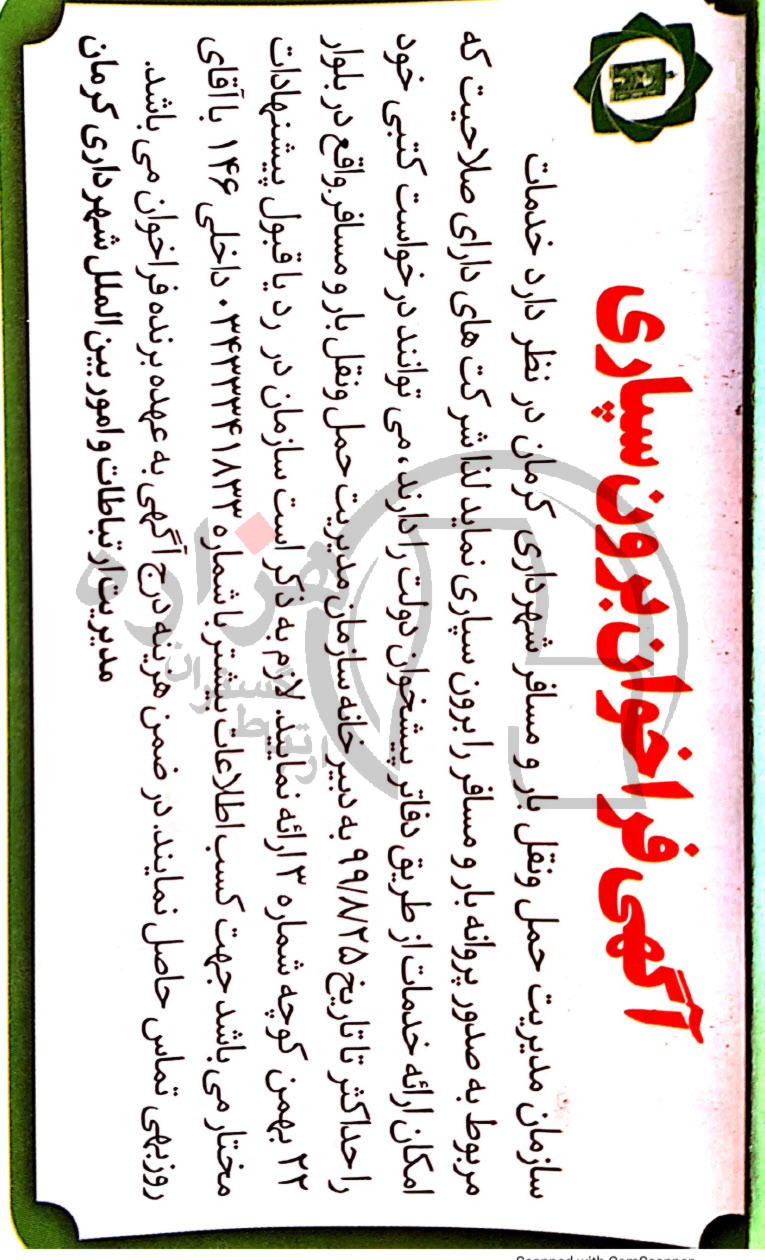 آگهی فراخوان برون سپاری
سازمان مدیریت حمل ونقل بار و مسافر شهرداری کرمان در نظر دارد خدمات
مربوط به صدور پروانه بار و مسافر را برون سپاری نماید لذا شرکت های دارای صلاحیت که
امکان ارائه خدمات از طریق دفاتر پیشخوان دولت را دارند ، می توانند درخواست کتبی خود
را حداکثر تا تاریخ ۹۹/۸/۲۵ به دبیرخانه سازمان مدیریت حمل ونقل بار و مسافر واقع در بلوار
۲۲ بهمن کوچه شماره ۳ ارائه نمایید. لازم به ذکر است سازمان در رد یا قبول پیشنهادات
مختار می باشد جهت کسب اطلاعات بیشتر با شماره ۰۳۴۳۳۳۴۱۸۳۳ داخلی ۱۴۶ با آقای
روزبهی تماس حاصل نمایند. در ضمن هزینه درج آگهی به عهده برنده فراخوان می باشد.
مدیریت ارتباطات و امور بین الملل شهرداری کرمان